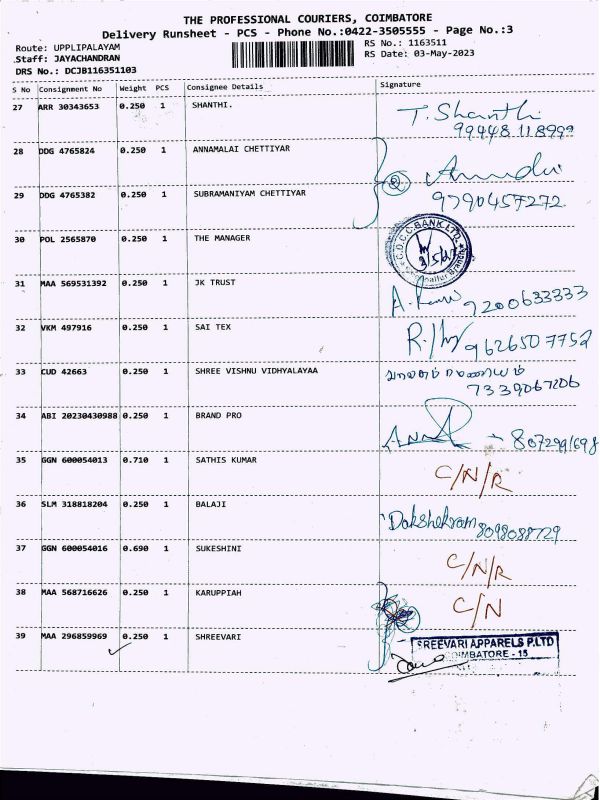 THE PROFESSIONAL COURIERS, COIMBATORE
Delivery Runsheet - PCS - Phone No.:0422-3505555 - Page No.:3
Route: UPPLIPALAYAM
RS No.: 1163511
Staff: JAYACHANDRAN
RS Date: 03-May-2023
DRS No.: DCJB116351103
S No Consignment No Weight PCS Consignee Details Signature
27 ARR 30343653 0.250 1 SHANTHI. T. Shanthi
99448 118999
28 DDG 4765824 0.250 1 ANNAMALAI CHETTIYAR
29 DDG 4765382 0.250 1 SUBRAMANIYAM CHETTIYAR 9790457272
30 POL 2565870 0.250 1 THE MANAGER C.D.C.C. BANK LTD.
3/5/23
31 MAA 569531392 0.250 1 JK TRUST 9200633333
32 VKM 497916 0.250 1 SAI TEX 9626507752
33 CUD 42663 0.250 1 SHREE VISHNU VIDHYALAYAA
7339067206
34 ABI 20230430988 0.250 1 BRAND PRO - 8072991698
35 GGN 600054013 0.710 1 SATHIS KUMAR C/N/R
36 SLM 318818204 0.250 1 BALAJI 8098088729
37 GGN 600054016 0.690 1 SUKESHINI C/N/R
38 MAA 568716626 0.250 1 KARUPPIAH C/N
39 MAA 296859969 0.250 1 SHREEVARI SREEVARI APPARELS P.LTD
COIMBATORE - 15